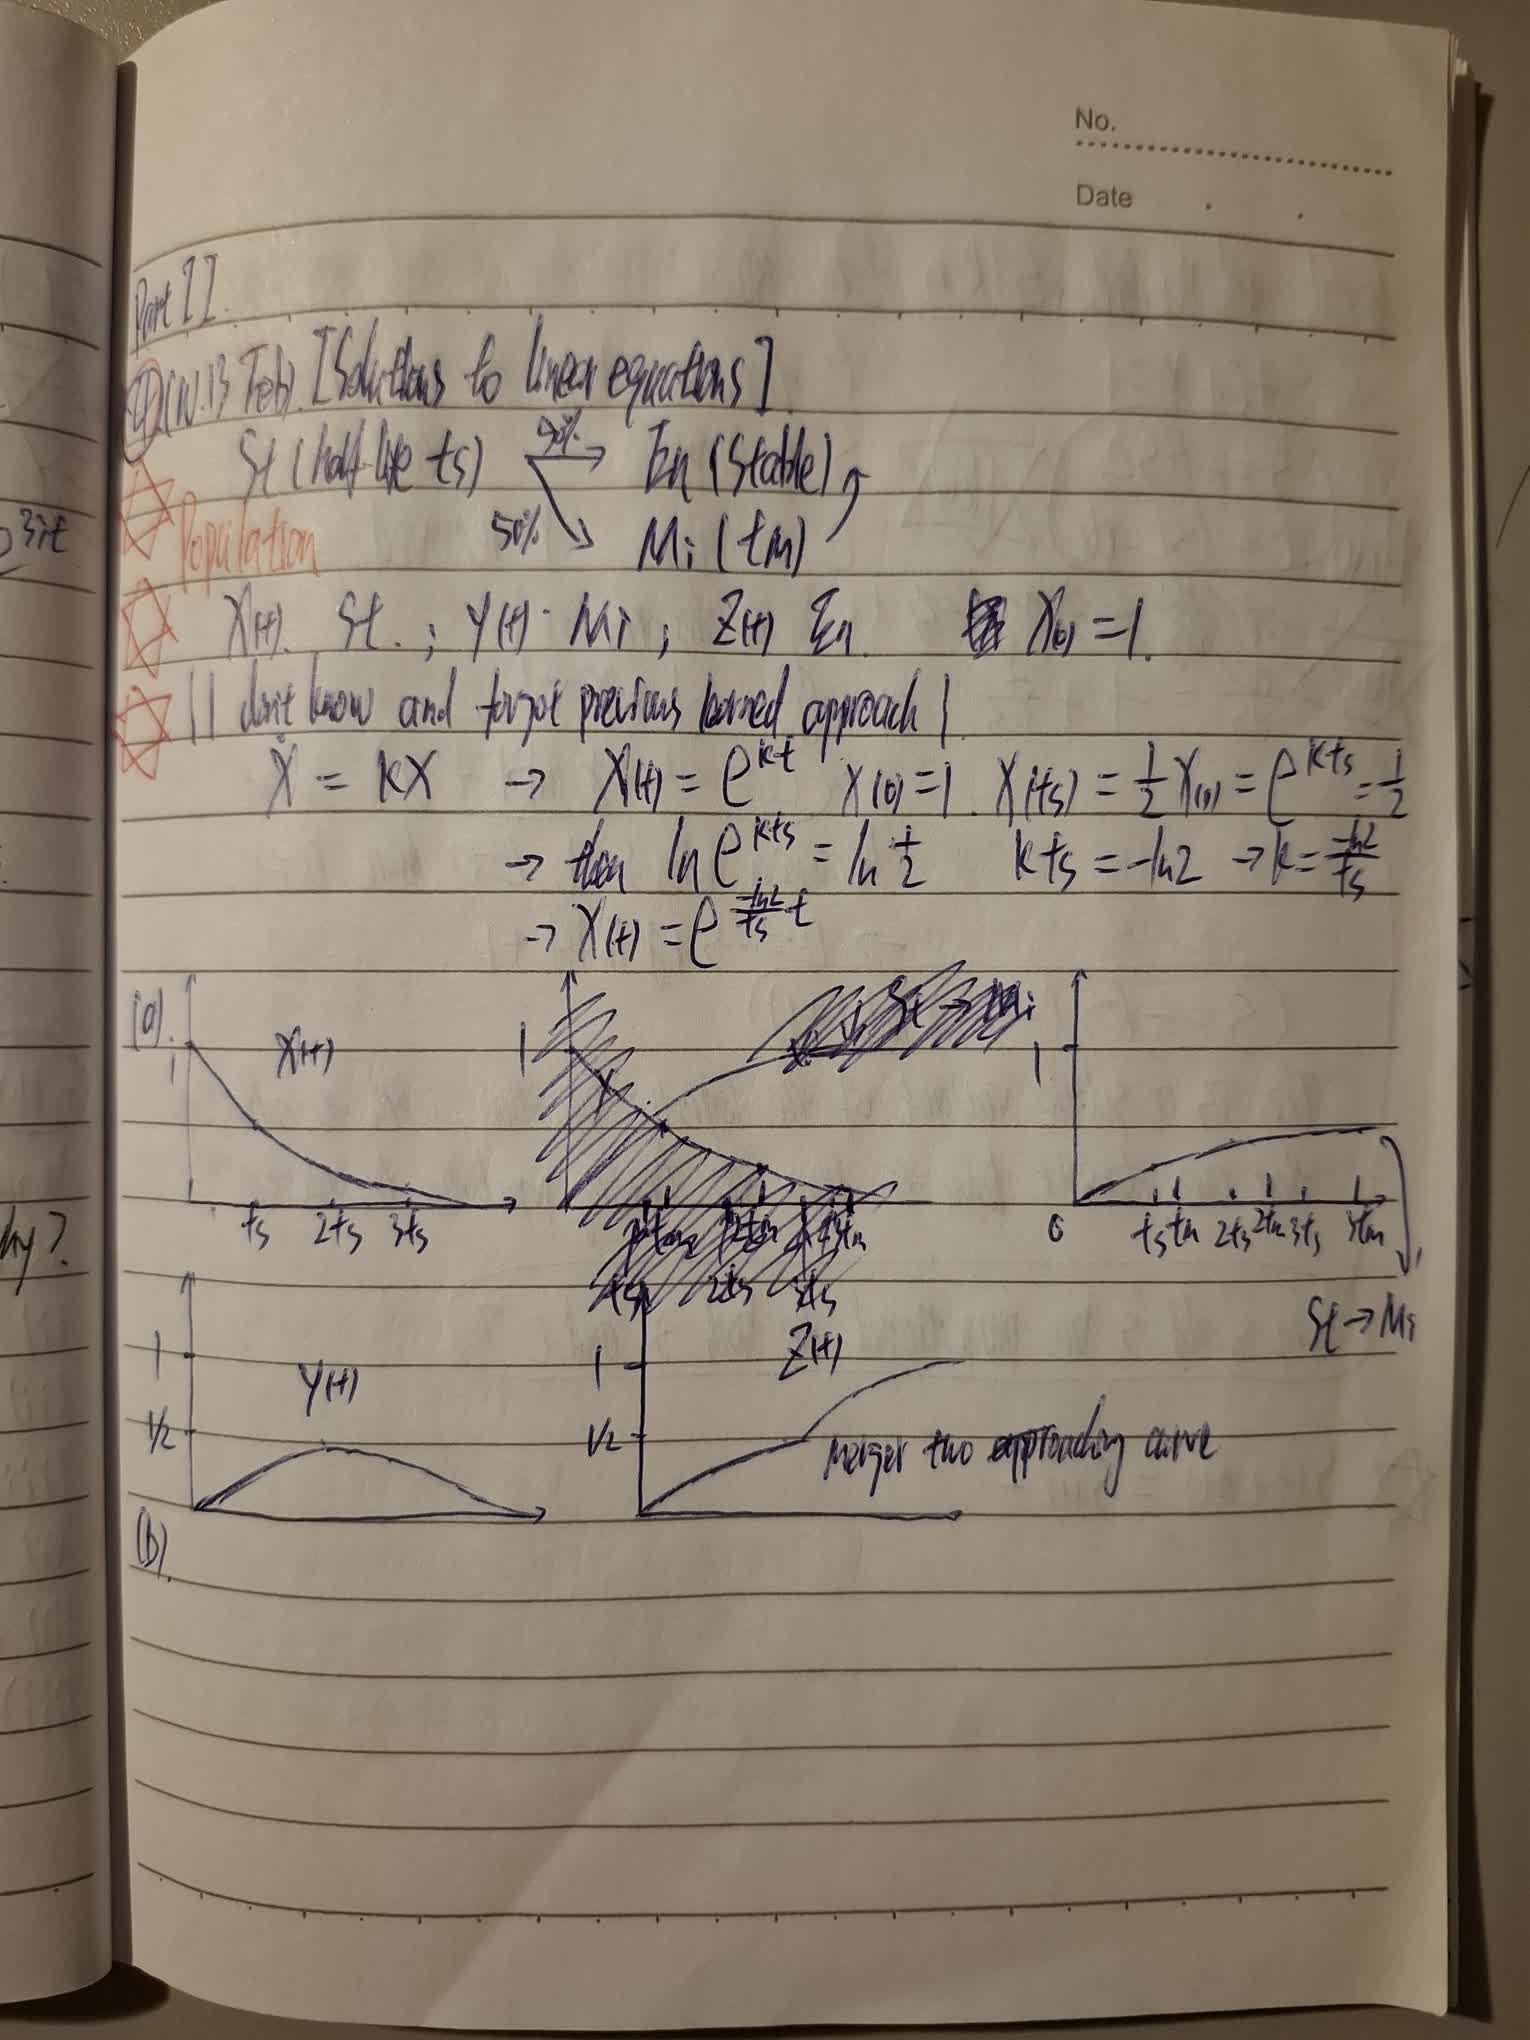 No.
Date
Part II.
④ (W.13 Feb). [Solutions to linear equations]
St (half-life ts) 50% → En (Stable)
50% Mi (tM)
Population
X(t). St. ; Y(t). Mi ; Z(t) En. X(0) = 1.
| I don't know and forgot previous learned approach |.
Ẋ = kX → X(t) = e^{kt} X(0) = 1. X(ts) = 1/2 X(0) = e^{kts} = 1/2
→ then ln e^{kts} = ln 1/2 kts = -ln2 → k = -ln2/ts
→ X(t) = e^{-ln2/ts t}
(a).
1 X(t)
ts 2ts 3ts
1
1
0 ts tm 2ts 2tm 3ts 3tm
St → Mi
1 1/2 Y(t)
1 1/2 Z(t)
merger two approaching curve
(b).
3it
hy?